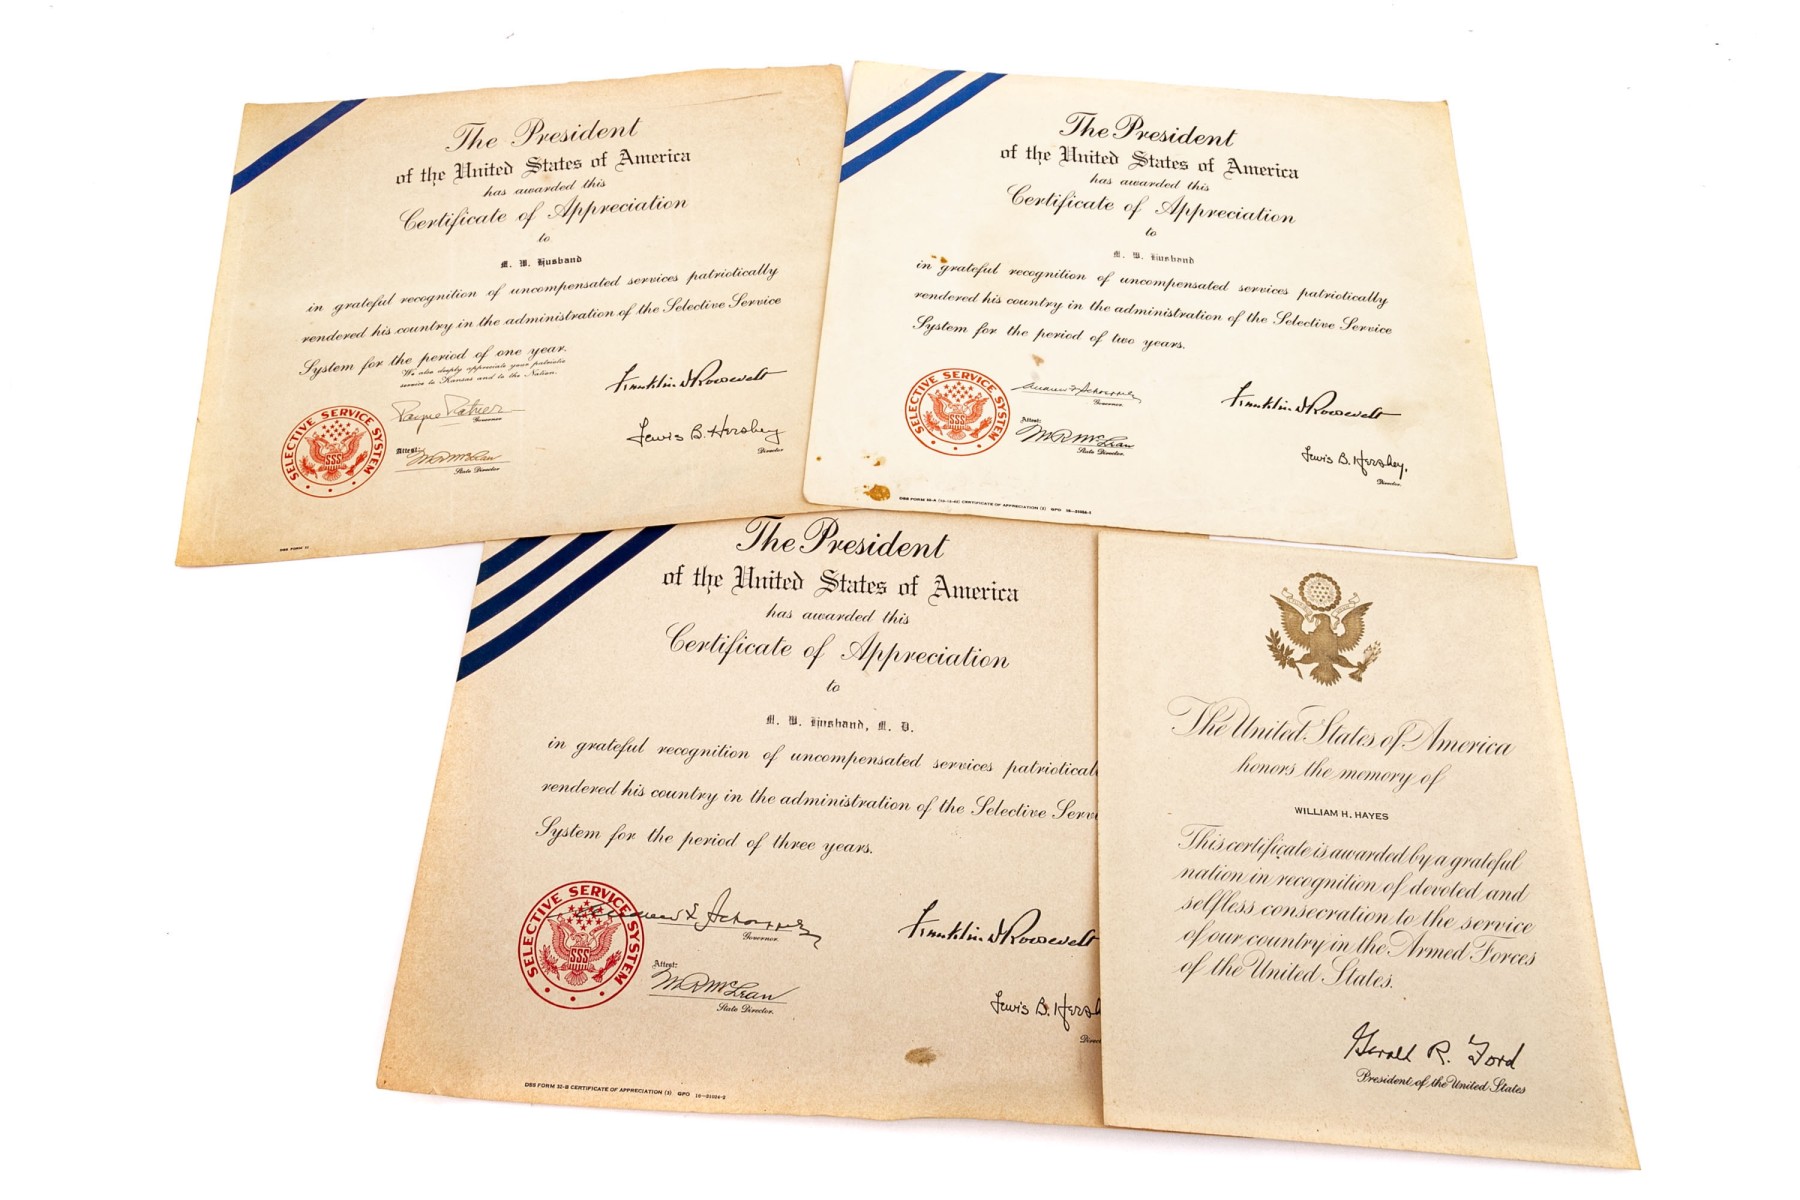 The President
of the United States of America
has awarded this
Certificate of Appreciation
to
M. W. Husband
in grateful recognition of uncompensated services patriotically
rendered his country in the administration of the Selective Service
System for the period of one year.
We also deeply appreciate your patriotic
service to Kansas and to the Nation.
Payne Ratner
Governor
Franklin D Roosevelt
SELECTIVE SERVICE SYSTEM
SSS
Attest:
M R McLean
State Director
Lewis B. Hershey
Director.
DSS FORM
The President
of the United States of America
has awarded this
Certificate of Appreciation
to
M. W. Husband
in grateful recognition of uncompensated services patriotically
rendered his country in the administration of the Selective Service
System for the period of two years.
Andrew F Schoeppel
Governor.
Franklin D Roosevelt
SELECTIVE SERVICE SYSTEM
SSS
Attest:
M R McLean
State Director.
Lewis B. Hershey,
Director.
CERTIFICATE OF APPRECIATION (2) GPO
The President
of the United States of America
has awarded this
Certificate of Appreciation
to
M. W. Husband, M. D.
in grateful recognition of uncompensated services patriotical
rendered his country in the administration of the Selective Servi
System for the period of three years.
Andrew F Schoeppel
Governor.
Franklin D Roosevelt
SELECTIVE SERVICE SYSTEM
SSS
Attest:
M R McLean
State Director.
Lewis B. Hersh
Direc
DSS FORM 32-B CERTIFICATE OF APPRECIATION (3) GPO 16—31034-2
The United States of America
honors the memory of
WILLIAM H. HAYES
This certificate is awarded by a grateful
nation in recognition of devoted and
selfless consecration to the service
of our country in the Armed Forces
of the United States.
Gerald R. Ford
President of the United States